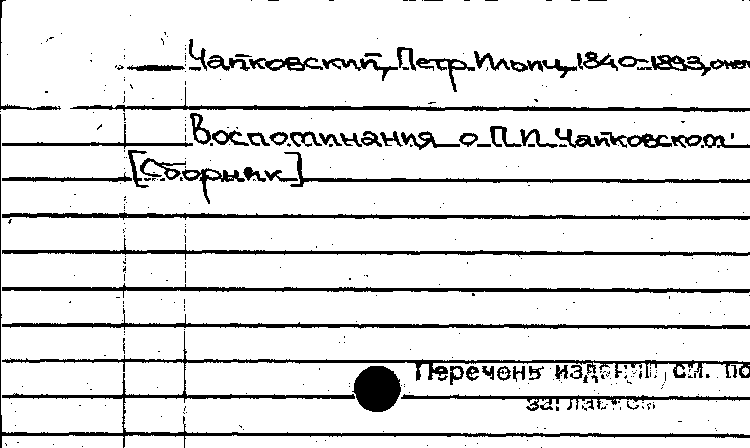 Чайковский, Петр Ильич, 1840-1893, о нем
Воспоминания о П.И. Чайковском
[Сборник]
Перечень изданий см. по
заглавием